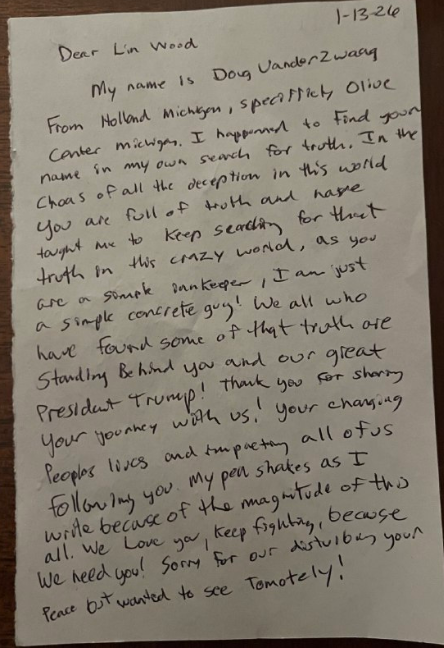 1-13-26
Dear Lin Wood
My name is Doug VanderZwaag
From Holland Michigan, speciffickly Olive
Center michigan. I happened to find your
name in my own search for truth. In the
Choas of all the deception in this world
you are full of truth and have
taught me to keep searching for that
truth in this crazy world, as you
are a simple innkeeper, I am just
a simple concrete guy! We all who
have found some of that truth are
Standing Behind you and our great
President Trump! Thank you for sharing
your journey with us! your changing
Peoples lives and impacting all of us
following you. My pen shakes as I
write because of the magnitude of this
all. We Love you, keep fighting, because
We need you! Sorry for our disturbing your
Peace but wanted to see Tomotely!